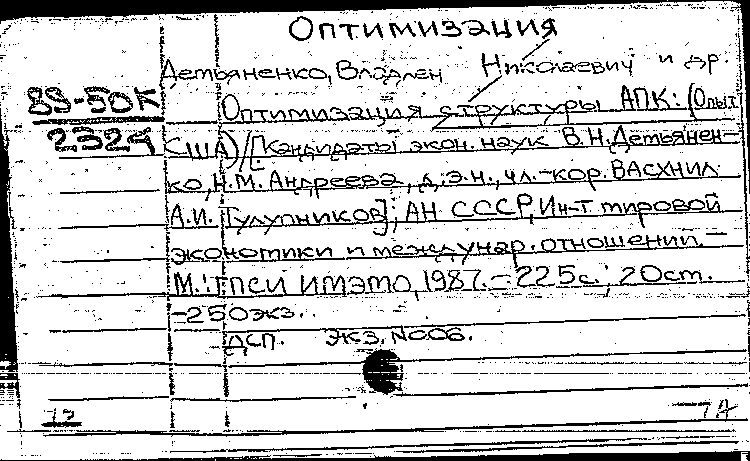 Оптимизация
Детьяненко, Владлен Николаевич и др.
89-50К
2324
Оптимизация структуры АПК: (Опыт
США) / [Кандидаты экон. наук В.Н. Детьянен-
ко, Н.М. Андреева, д.э.н., чл.-кор. ВАСХНИЛ
А.И. Тулупников]; АН СССР, Ин-т мировой
экономики и междунар. отношений. –
М.: ТПСИ ИМЭМО, 1987. – 225 с.; 20 см.
– 250 экз.
ДСП. Экз. N 006.